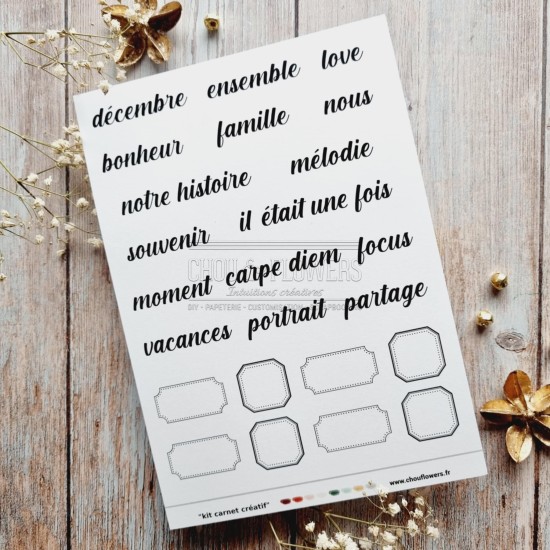 décembre ensemble love
bonheur famille nous
notre histoire mélodie
souvenir il était une fois
CHOU & FLOWERS
Intuitions créatives
moment carpe diem focus
vacances portrait partage
"kit carnet créatif" www.chouflowers.fr